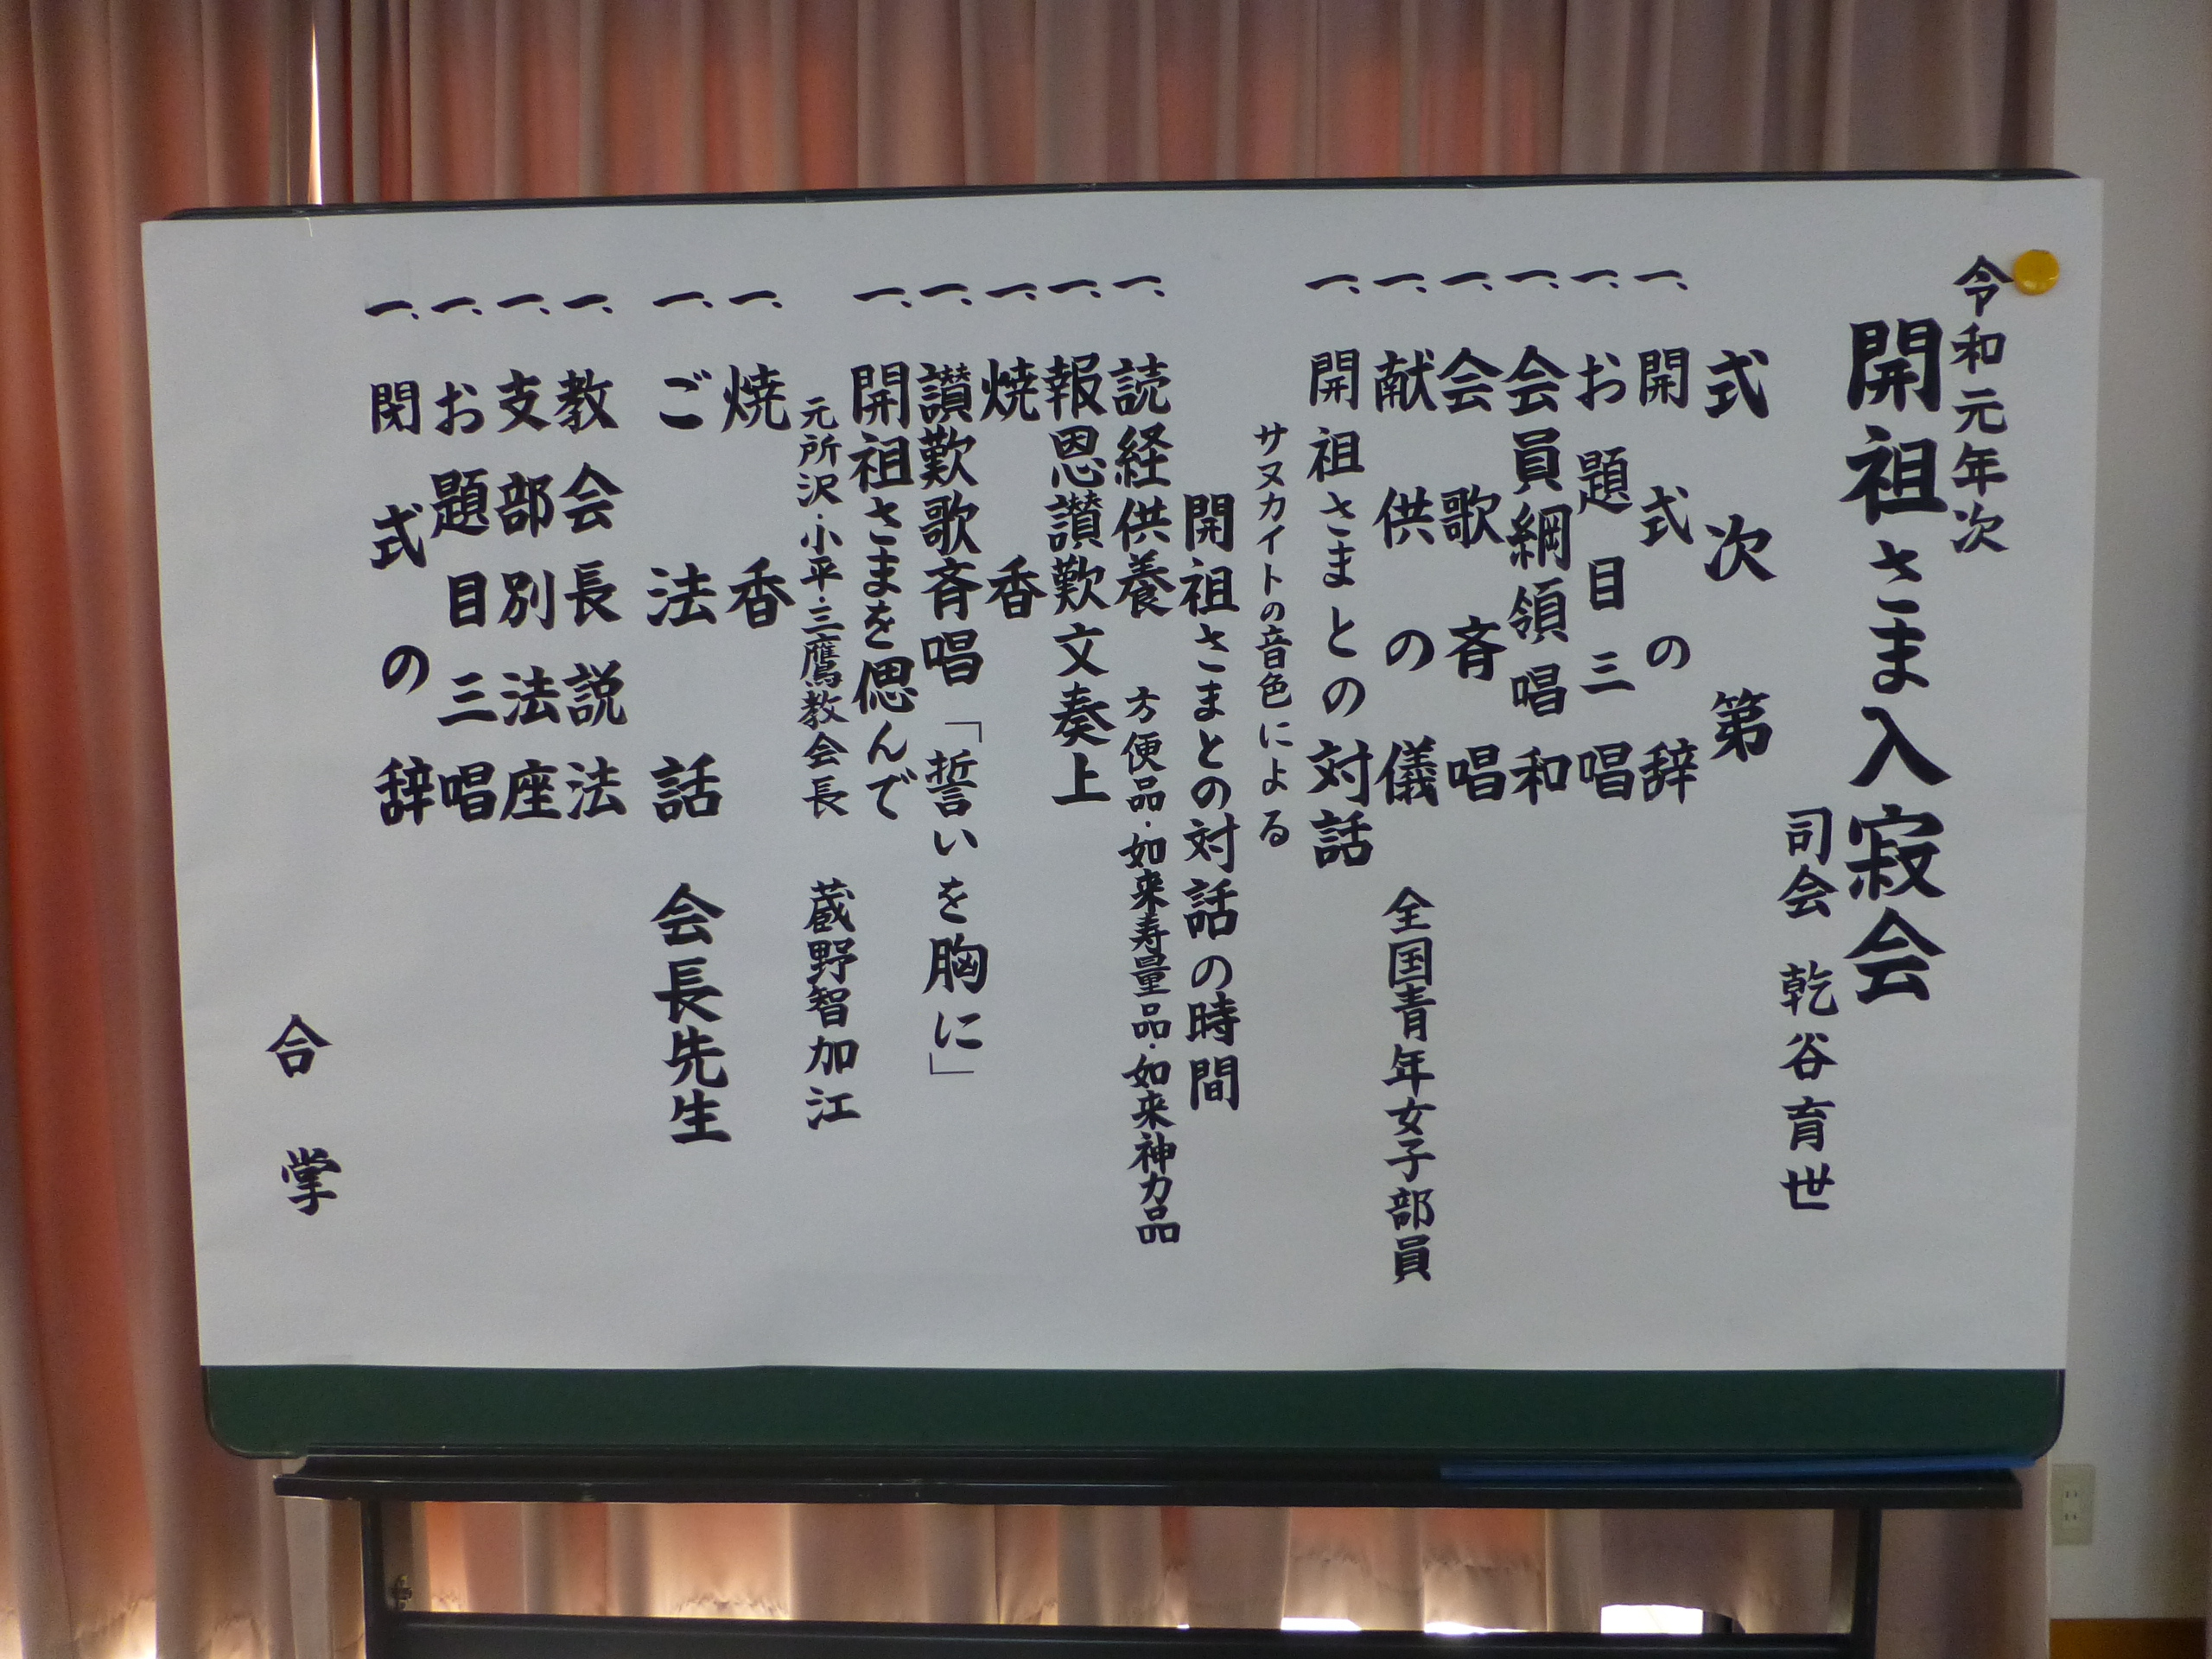 令和元年次
開祖さま入寂会
司会 乾谷育世
式次第
一、開式の辞
一、お題目三唱
一、会員綱領唱和
一、会歌斉唱
一、献供の儀 全国青年女子部員
一、開祖さまとの対話
サヌカイトの音色による
開祖さまとの対話の時間
一、読経供養 方便品・如来寿量品・如来神力品
一、報恩讃歎文奏上
一、焼香
一、讃歎歌斉唱「誓いを胸に」
一、開祖さまを偲んで
元所沢・小平・三鷹教会長 蔵野智加江
一、焼香
一、ご法話 会長先生
一、教会長説法
一、支部別法座
一、お題目三唱
一、閉式の辞
合掌